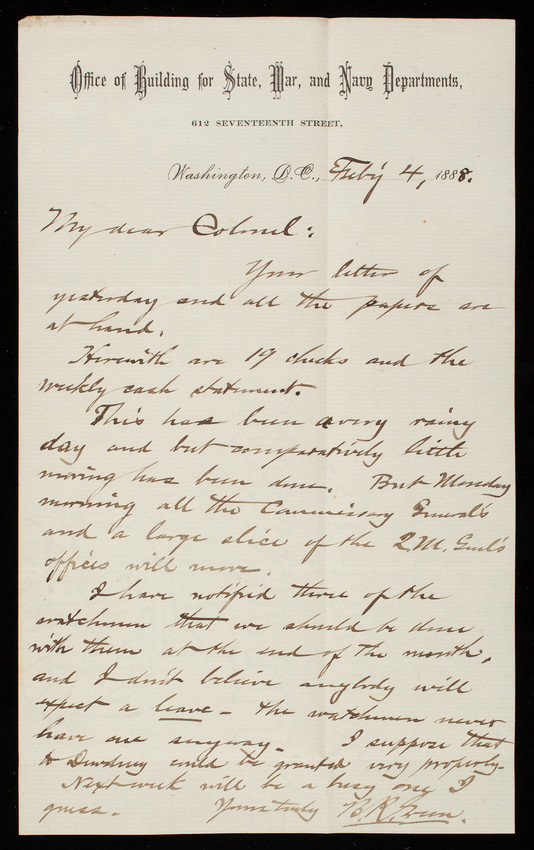 Office of Building for State, War, and Navy Departments,
612 SEVENTEENTH STREET,
Washington, D.C., Feb'y 4, 1888.
My dear Colonel:
Your letter of
yesterday and all the papers are
at hand.
Herewith are 19 checks and the
weekly cash statement.
This has been a very rainy
day and but comparatively little
moving has been done. But Monday
morning all the Commissary General's
and a large slice of the Q.M. Genl's
offices will move.
I have notified three of the
watchmen that we should be done
with them at the end of the month,
and I don't believe anybody will
expect a leave - the watchmen never
have one anyway. I suppose that
to Dewdney could be granted very properly.
Next week will be a busy one I
guess. Yours truly B.R. Green.